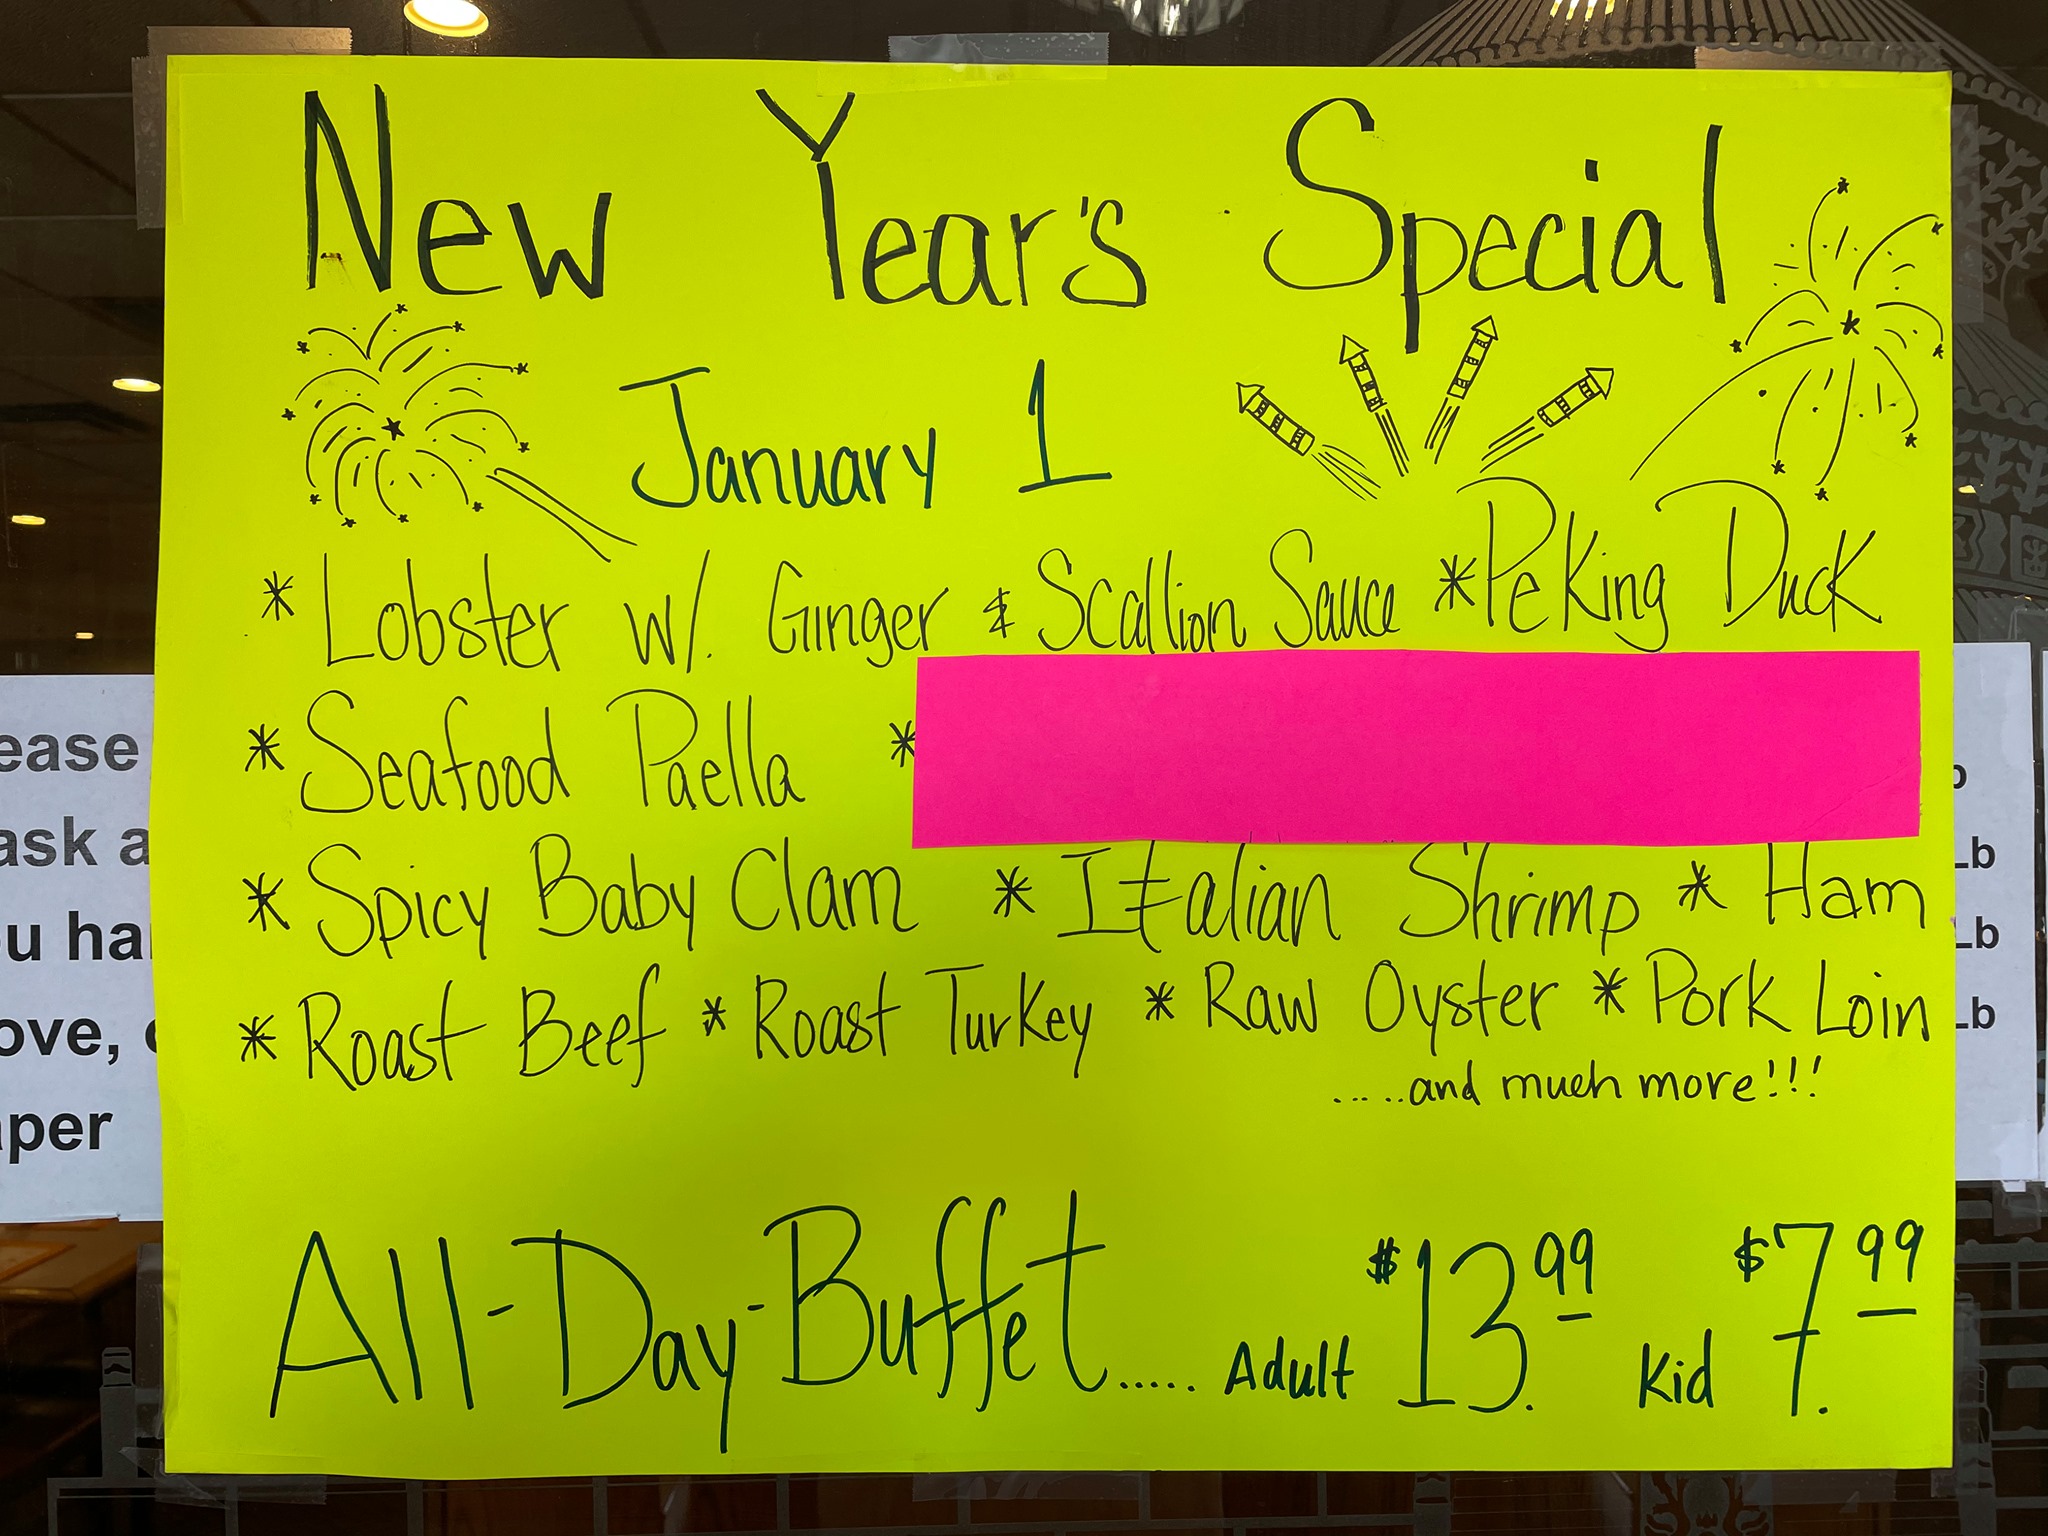 New Year's Special
January 1
* Lobster w/. Ginger & Scallion Sauce * Peking Duck
* Seafood Paella *
* Spicy Baby Clam * Italian Shrimp * Ham
* Roast Beef * Roast Turkey * Raw Oyster * Pork Loin
.....and much more!!!
All-Day-Buffet..... Adult $13.99 Kid $7.99
ease
ask a
u ha
ove,
aper
Lb
Lb
Lb